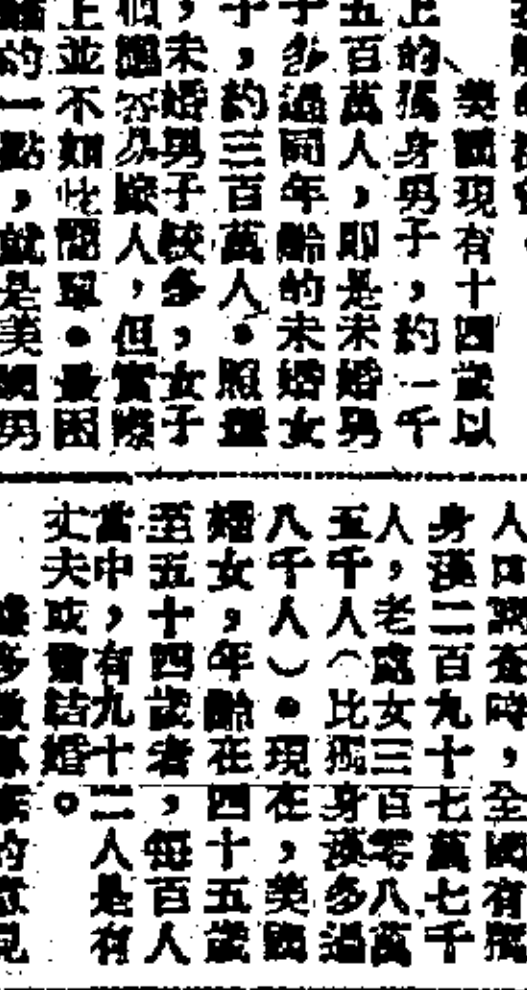 美國現有十四歲以
上的獨身男子，約一千
五百萬人，即是未婚男
子多過同年齡的未婚女
子，約三百萬人。照理
，未婚男子較多，女子
們應容易嫁人，但實際
上並不如此簡單。最困
的一點，就是美國男
人口調查時，全國有孤
身漢二百九十七萬七千
人，老處女三百零八萬
五千人（比孤身漢多過
八千人）。現在，美國
婦女，年齡在四十五歲
至五十四歲者，每百人
當中，有九十二人是有
丈夫或曾結婚。
的意見